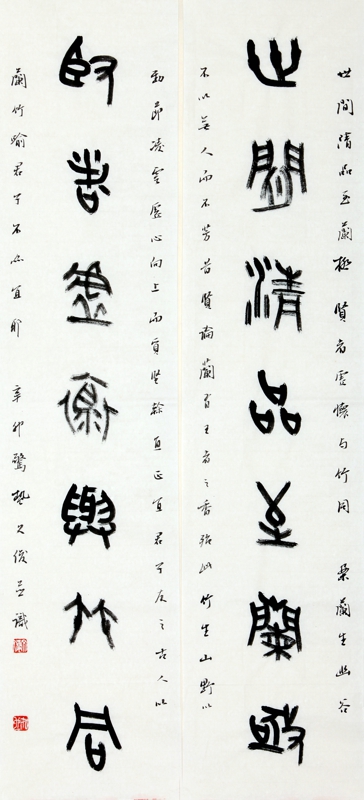 世間清品至蘭極賢者虛懷與竹同 蘭生幽谷
世間清品至蘭極
不以無人而不芳昔賢論蘭有王者之香 此竹生山野以
勁節凌雲虛心向上而貞堅幹直正宜君子友之古人以
賢者虛懷與竹同
蘭竹喻君子不亦宜耶 辛卯驚蟄 俊並識